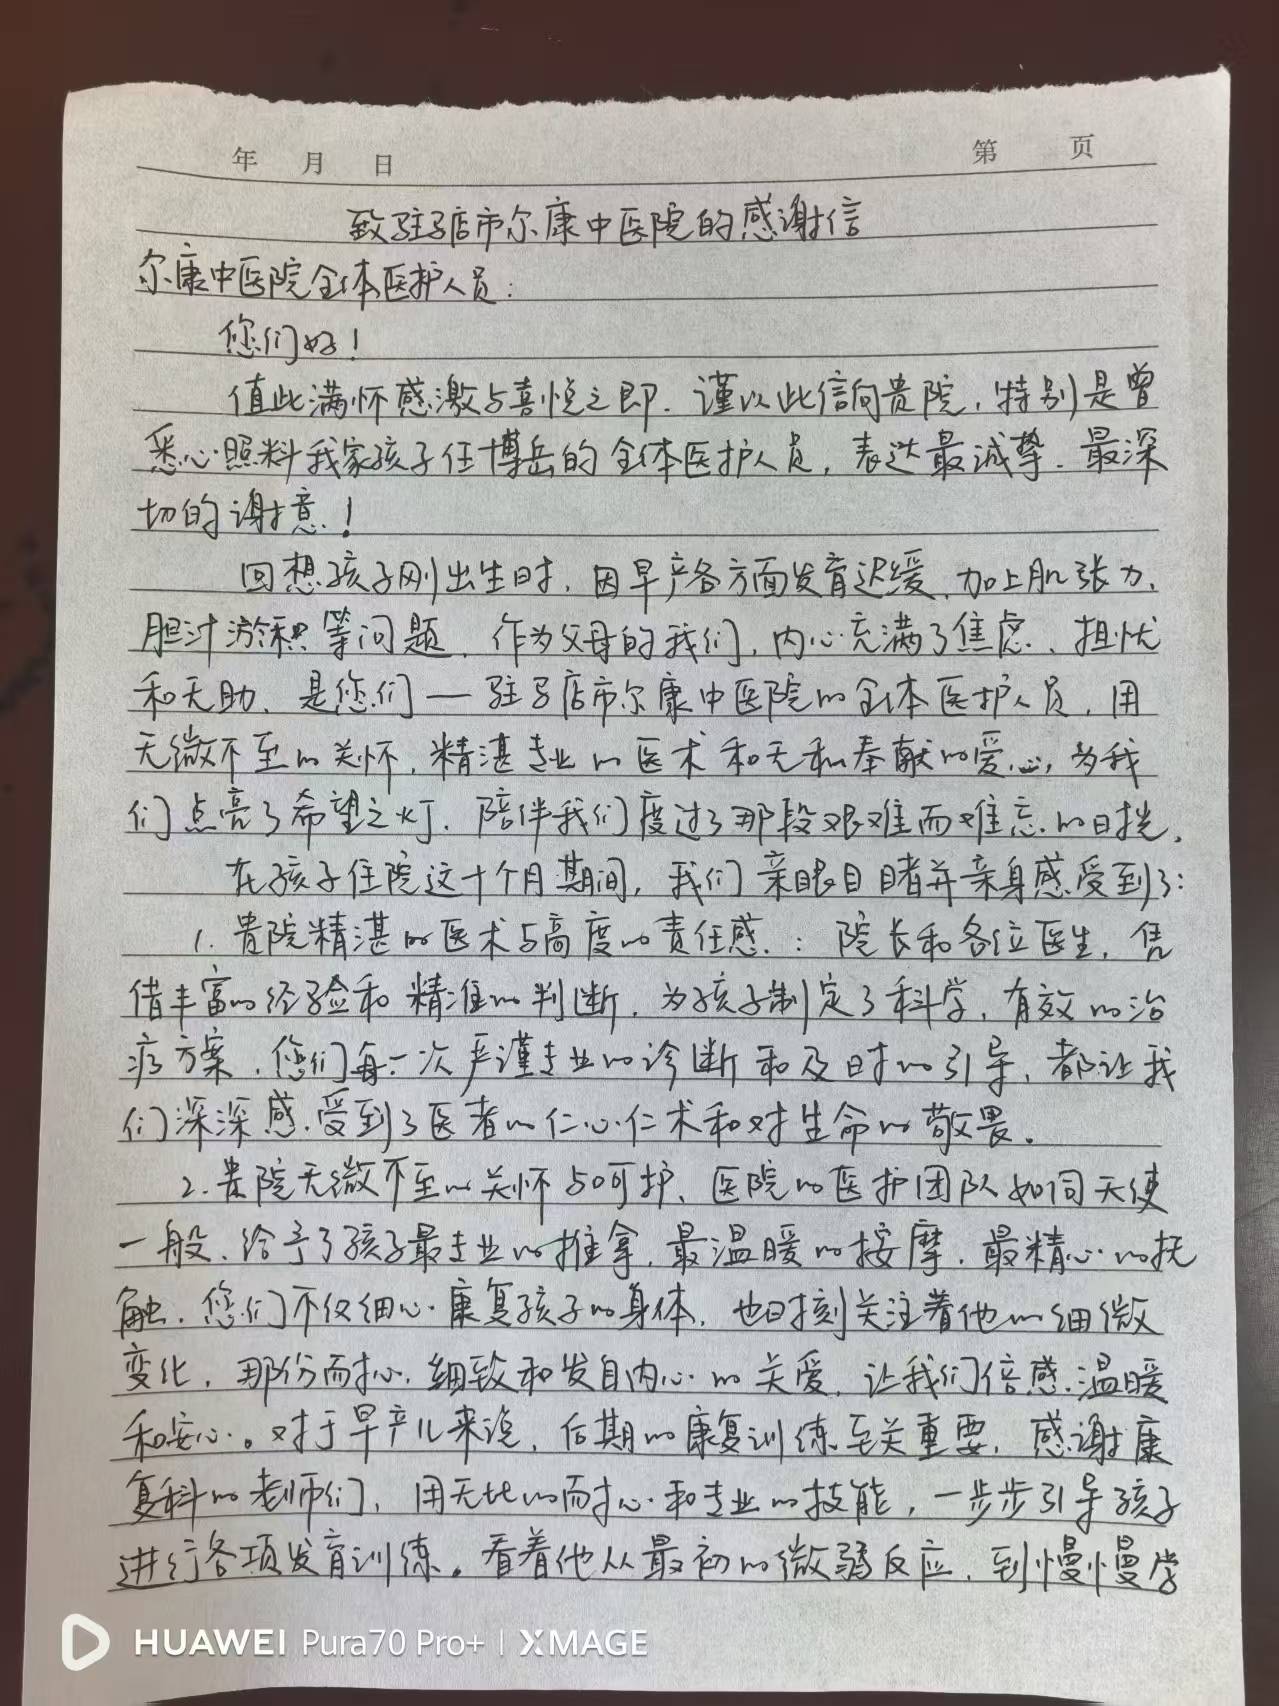 年 月 日 第 页
致驻马店市尔康中医院的感谢信
尔康中医院全体医护人员：
您们好！
值此满怀感激与喜悦之即，谨以此信向贵院，特别是曾
悉心照料我家孩子任博岳的全体医护人员，表达最诚挚、最深
切的谢意！
回想孩子刚出生时，因早产各方面发育迟缓，加上肌张力、
胆汁淤积等问题，作为父母的我们，内心充满了焦虑、担忧
和无助、是您们——驻马店市尔康中医院的全体医护人员，用
无微不至的关怀，精湛专业的医术和无私奉献的爱心，为我
们点亮了希望之灯，陪伴我们度过了那段艰难而难忘的日光。
在孩子住院这十个月期间，我们亲眼目睹并亲身感受到了：
1. 贵院精湛的医术与高度的责任感：院长和各位医生，凭
借丰富的经验和精准的判断，为孩子制定了科学，有效的治
疗方案，您们每一次严谨专业的诊断和及时的引导，都让我
们深深感受到了医者的仁心仁术和对生命的敬畏。
2. 贵院无微不至的关怀与呵护、医院的医护团队如同天使
一般、给予了孩子最专业的推拿，最温暖的按摩，最精心的抚
触，您们不仅细心康复孩子的身体，也时刻关注着他的细微
变化，那份耐心，细致和发自内心的关爱，让我们倍感温暖
和安心。对于早产儿来说，后期的康复训练至关重要，感谢康
复科的老师们，用无比的耐心和专业的技能，一步步引导孩子
进行各项发育训练。看着他从最初的微弱反应，到慢慢学
HUAWEI Pura70 Pro+ | XMAGE